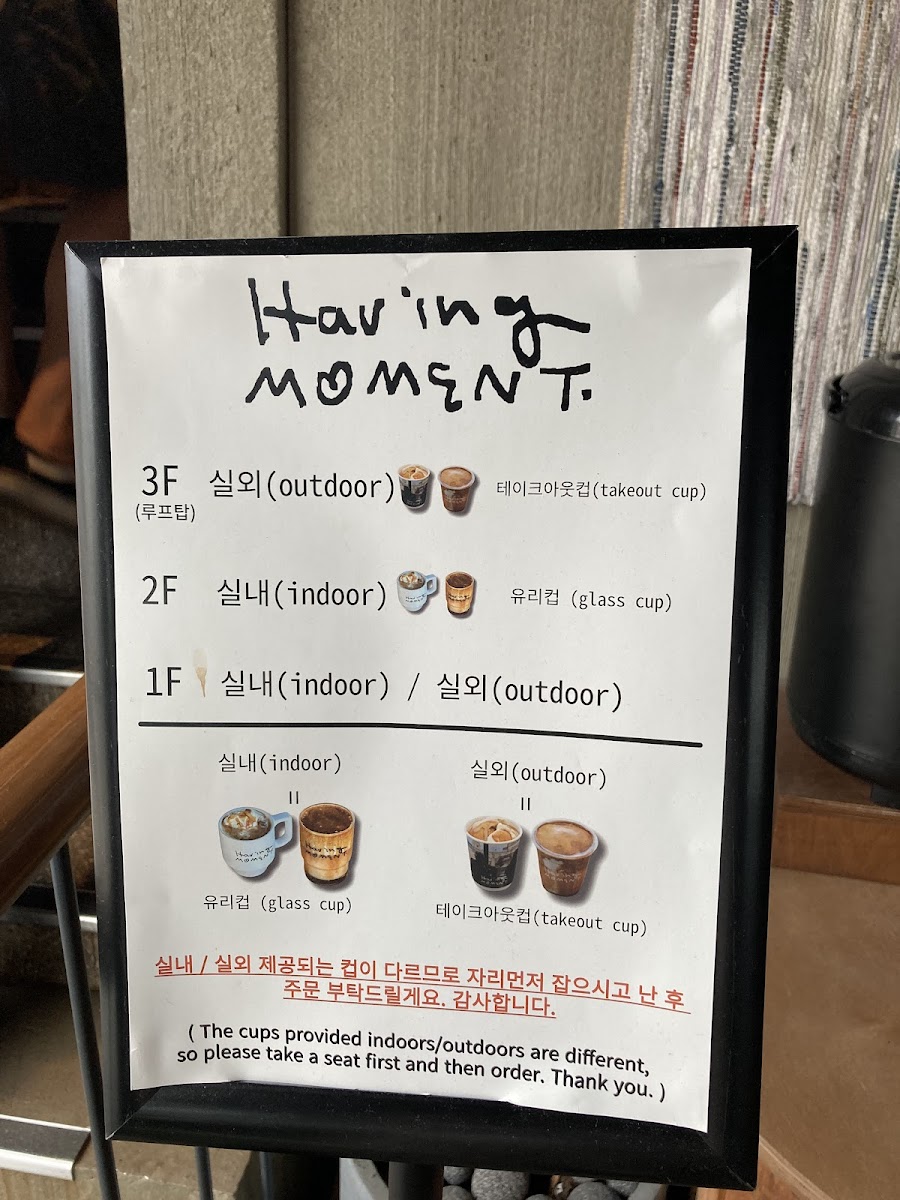 Having
MOMENT.
3F 실외(outdoor) 테이크아웃컵(takeout cup)
(루프탑)
2F 실내(indoor) 유리컵 (glass cup)
1F 실내(indoor) / 실외(outdoor)
실내(indoor) 실외(outdoor)
= =
Having MOMENT Having MOMENT
유리컵 (glass cup) 테이크아웃컵(takeout cup)
실내 / 실외 제공되는 컵이 다르므로 자리먼저 잡으시고 난 후
주문 부탁드릴게요. 감사합니다.
( The cups provided indoors/outdoors are different,
so please take a seat first and then order. Thank you. )